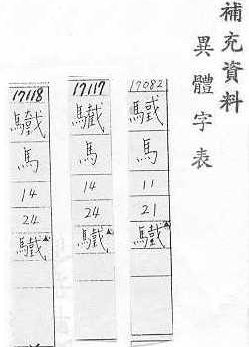 補充資料
異體字表
17082
馬
11
21
驖
17117
馬
14
24
驖
17118
馬
14
24
驖